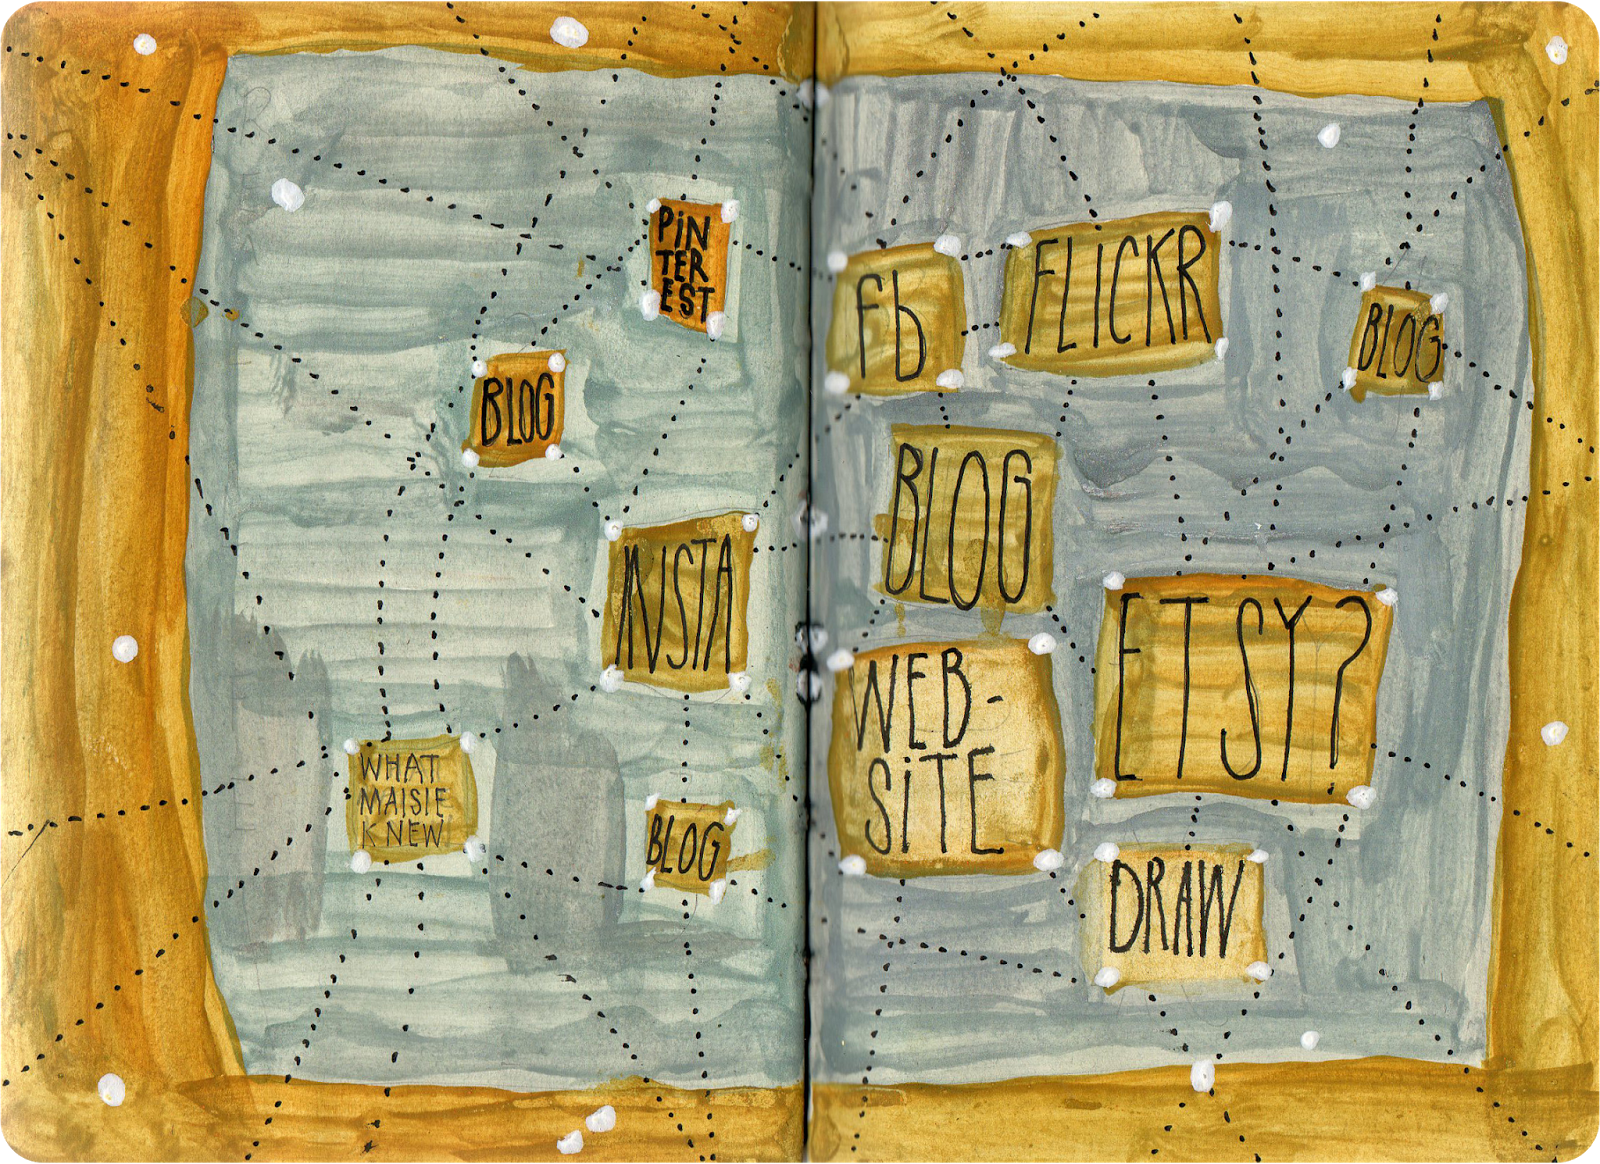 PiN
TER
EST
BLOG
INSTA
WHAT
MAISIE
KNEW
BLOG
fb
FLICKR
BLOG
BLOG
WEB-
SiTE
ETSY?
DRAW